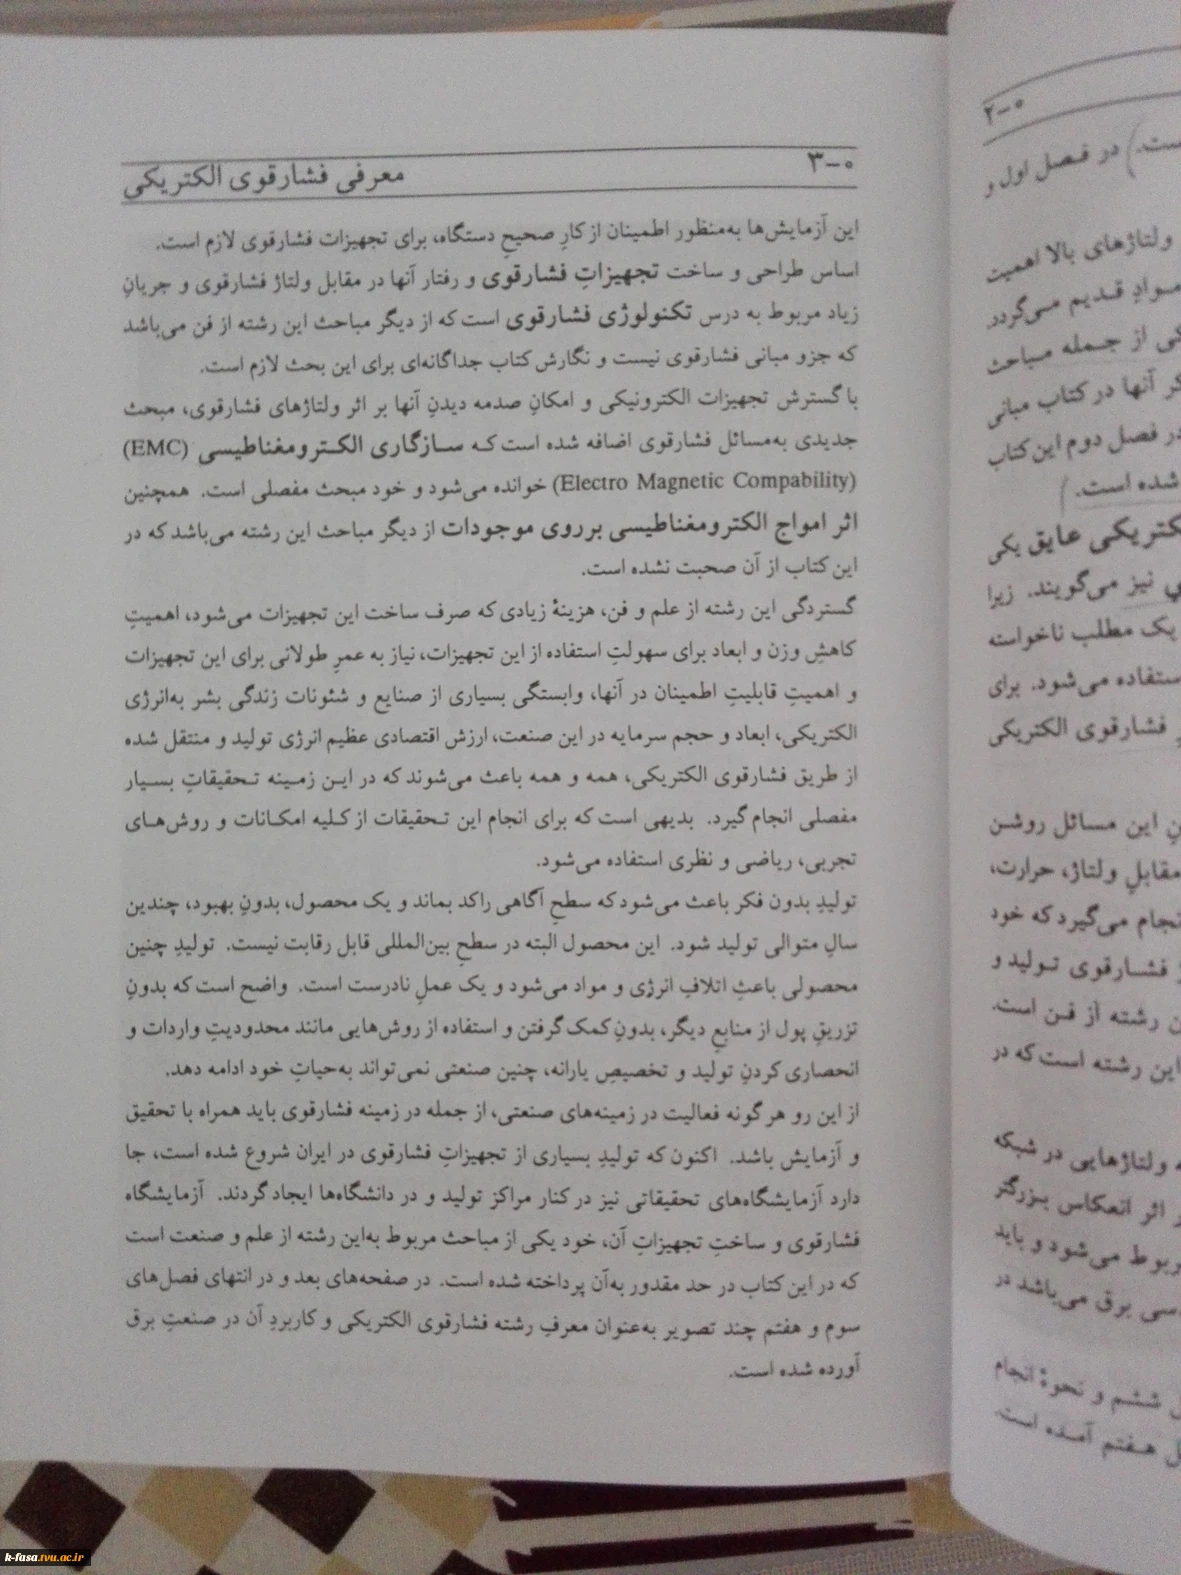 ۳-۰
معرفی فشارقوی الکتریکی
این آزمایش‌ها به‌منظور اطمینان از کارِ صحیحِ دستگاه، برای تجهیزات فشارقوی لازم است.
اساس طراحی و ساخت تجهیزاتِ فشارقوی و رفتار آنها در مقابل ولتاژ فشارقوی و جریانِ
زیاد مربوط به درس تکنولوژی فشارقوی است که از دیگر مباحث این رشته از فن می‌باشد
که جزو مبانی فشارقوی نیست و نگارش کتاب جداگانه‌ای برای این بحث لازم است.
با گسترش تجهیزات الکترونیکی و امکانِ صدمه دیدنِ آنها بر اثر ولتاژهای فشارقوی، مبحث
جدیدی به‌مسائل فشارقوی اضافه شده است که سازگاری الکترومغناطیسی (EMC)
(Electro Magnetic Compability) خوانده می‌شود و خود مبحث مفصلی است. همچنین
اثر امواج الکترومغناطیسی برروی موجودات از دیگر مباحث این رشته می‌باشد که در
این کتاب از آن صحبت نشده است.
گستردگی این رشته از علم و فن، هزینهٔ زیادی که صرف ساخت این تجهیزات می‌شود، اهمیتِ
کاهشِ وزن و ابعاد برای سهولتِ استفاده از این تجهیزات، نیاز به عمرِ طولانی برای این تجهیزات
و اهمیتِ قابلیتِ اطمینان در آنها، وابستگی بسیاری از صنایع و شئونات زندگی بشر به‌انرژی
الکتریکی، ابعاد و حجم سرمایه در این صنعت، ارزش اقتصادی عظیم انرژی تولید و منتقل شده
از طریق فشارقوی الکتریکی، همه و همه باعث می‌شوند که در این زمینه تحقیقاتِ بسیار
مفصلی انجام گیرد. بدیهی است که برای انجام این تحقیقات از کلیه امکانات و روش‌های
تجربی، ریاضی و نظری استفاده می‌شود.
تولیدِ بدون فکر باعث می‌شود که سطحِ آگاهی راکد بماند و یک محصول، بدونِ بهبود، چندین
سالِ متوالی تولید شود. این محصول البته در سطحِ بین‌المللی قابل رقابت نیست. تولیدِ چنین
محصولی باعثِ اتلافِ انرژی و مواد می‌شود و یک عملِ نادرست است. واضح است که بدونِ
تزریقِ پول از منابعِ دیگر، بدونِ کمک گرفتن و استفاده از روش‌هایی مانند محدودیتِ واردات و
انحصاری کردنِ تولید و تخصیصِ یارانه، چنین صنعتی نمی‌تواند به‌حیاتِ خود ادامه دهد.
از این رو هر گونه فعالیت در زمینه‌های صنعتی، از جمله در زمینه فشارقوی باید همراه با تحقیق
و آزمایش باشد. اکنون که تولیدِ بسیاری از تجهیزاتِ فشارقوی در ایران شروع شده است، جا
دارد آزمایشگاه‌های تحقیقاتی نیز در کنار مراکز تولید و در دانشگاه‌ها ایجاد گردند. آزمایشگاه
فشارقوی و ساختِ تجهیزاتِ آن، خود یکی از مباحث مربوط به‌این رشته از علم و صنعت است
که در این کتاب در حد مقدور به‌آن پرداخته شده است. در صفحه‌های بعد و در انتهای فصل‌های
سوم و هفتم چند تصویر به‌عنوان معرفِ رشته فشارقوی الکتریکی و کاربردِ آن در صنعتِ برق
آورده شده است.
۲-۰
در فصل اول و
ولتاژهای بالا اهمیت
موادِ قدیم می‌گردد.
از جمله مباحث
آنها در کتاب مبانی
در فصل دوم این کتاب
شده است.
عایق یکی
نیز می‌گویند. زیرا
یک مطلب ناخواسته
می‌شود. برای
فشارقوی الکتریکی
این مسائل روشن
مقابلِ ولتاژ، حرارت،
انجام می‌گیرد که خود
فشارقوی تولید و
رشته از فن است.
این رشته است که در
ولتاژهایی در شبکه
اثر انعکاس بزرگتر
می‌شود و باید
برق می‌باشد در
ششم و نحوهٔ انجام
هفتم آمده است.
k-fasa.tvu.ac.ir